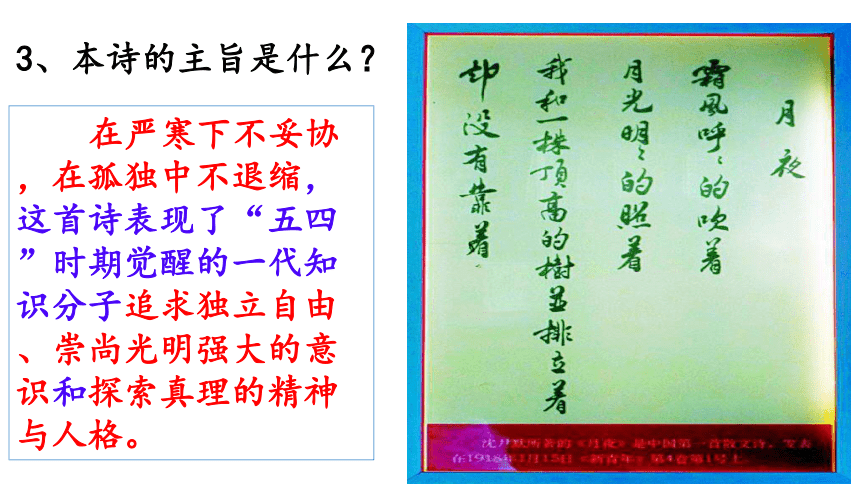 3、本诗的主旨是什么?
在严寒下不妥协
,在孤独中不退缩,
这首诗表现了“五四
”时期觉醒的一代知
识分子追求独立自由
、崇尚光明强大的意
识和探索真理的精神
与人格。
月夜
霜風呼〻的吹着
月光明〻的照着
我和一株顶高的樹並排立着
却没有靠着
沈尹默所著的《月夜》是中国第一首散文诗,发表
在1918年1月15日《新青年》第4卷第1号上